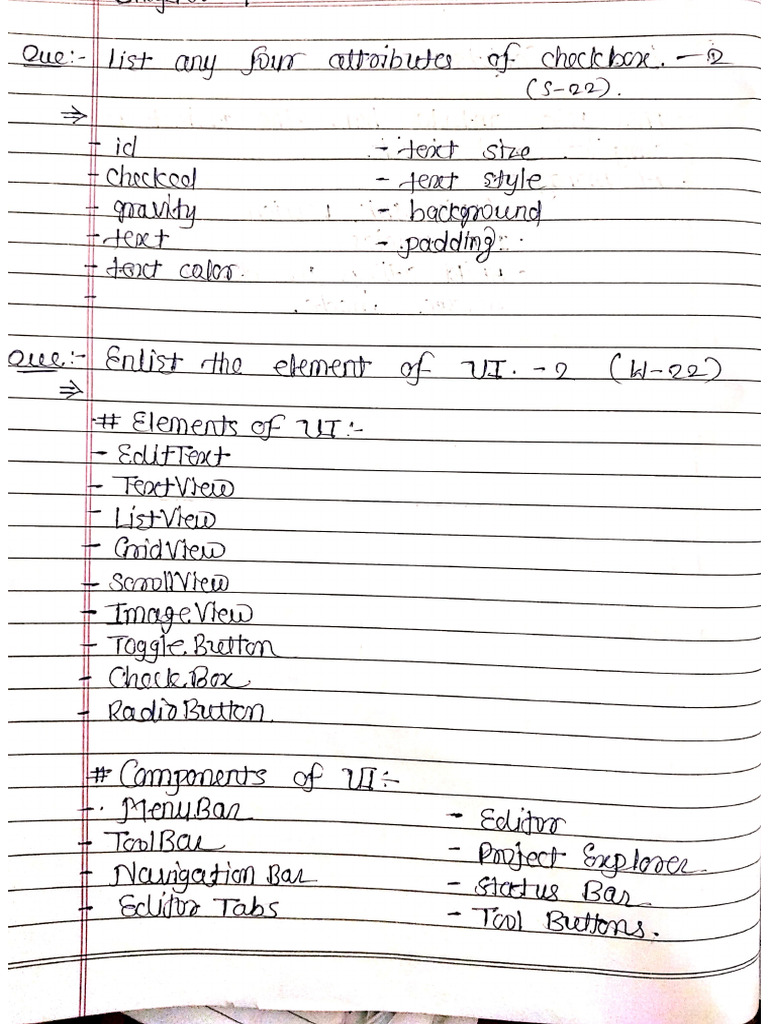 Que:- List any four attributes of checkbox. — 2
(S-22).
⇒
- id
- checked
- gravity
- text
- text color.
-
- text size
- text style
- background
- padding.
Que:- Enlist the element of UI. - 2 (W-22)
⇒
# Elements of UI:-
- EditText
- TextView
- ListView
- GridView
- ScrollView
- ImageView
- Toggle Button
- Check Box
- Radio Button
# Components of UI:-
- MenuBar
- ToolBar
- Navigation Bar
- Editor Tabs
- Editor
- Project Explorer
- Status Bar
- Tool Buttons.